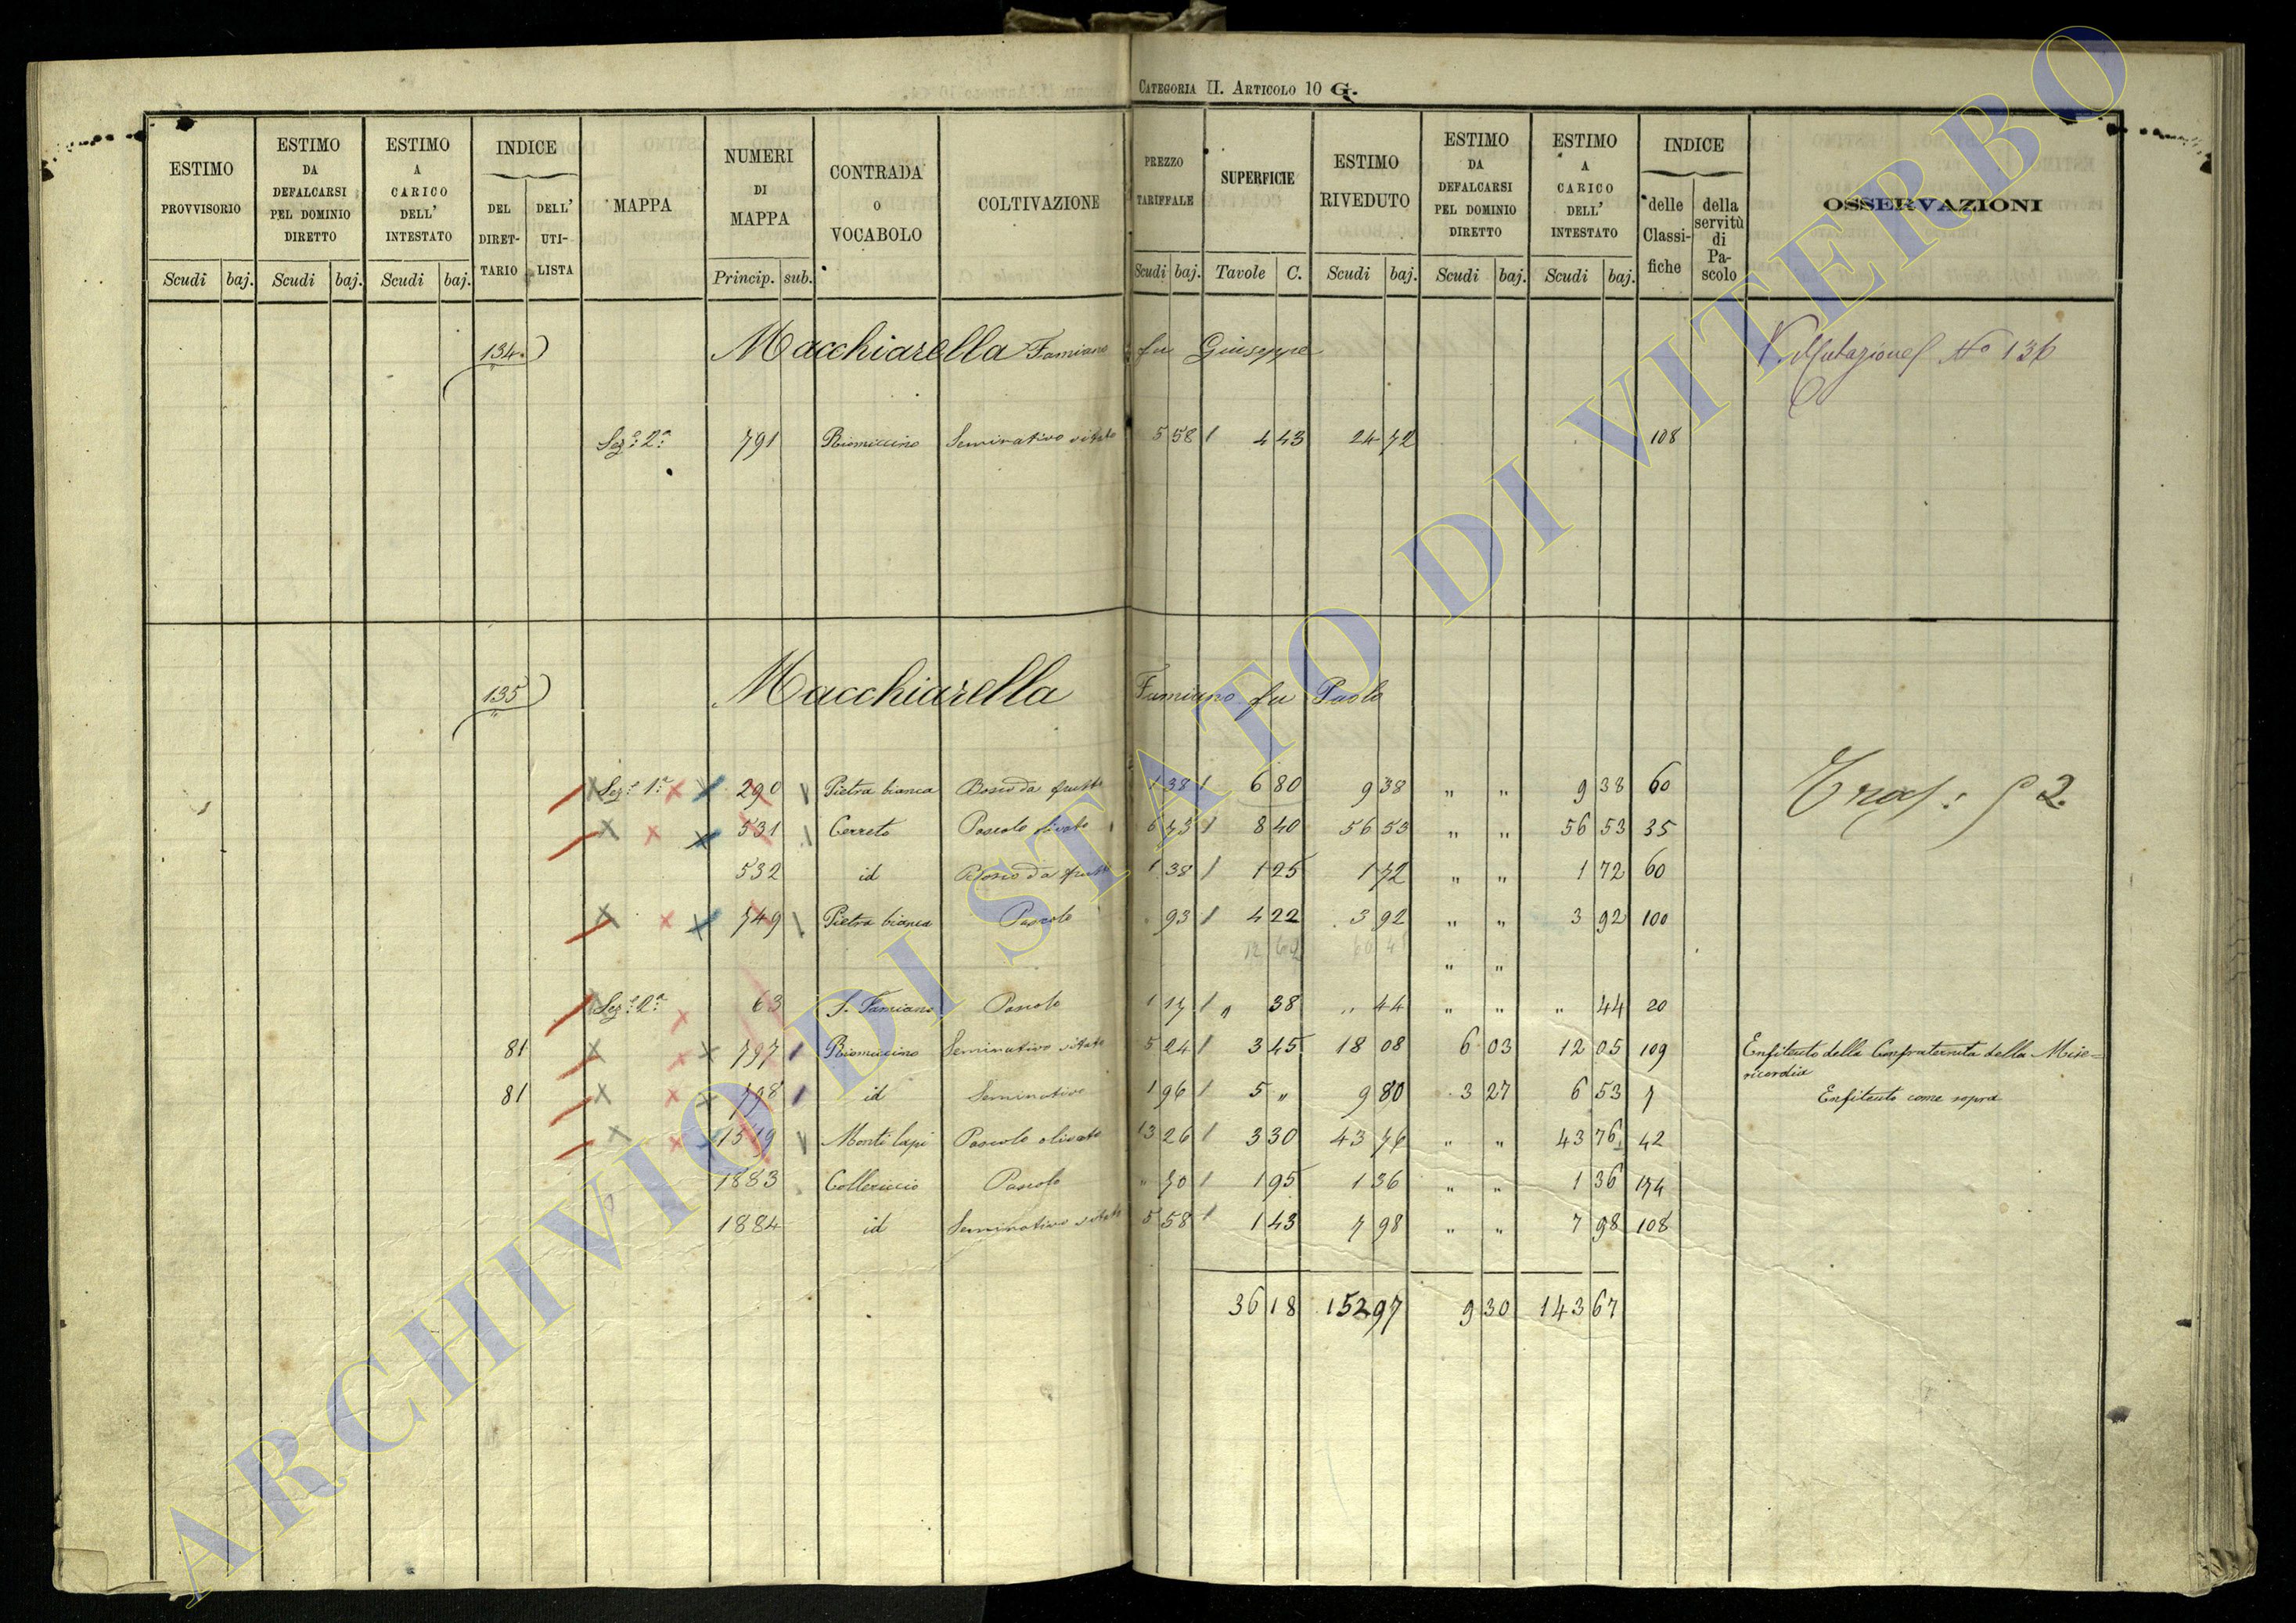 CATEGORIA II. ARTICOLO 10 G.
ESTIMO PROVVISORIO Scudi baj. ESTIMO DA DEFALCARSI PEL DOMINIO DIRETTO Scudi baj. ESTIMO A CARICO DELL' INTESTATO Scudi baj. INDICE DEL DIRET-TARIO DELL' UTI-LISTA MAPPA NUMERI DI MAPPA Princip. sub. CONTRADA O VOCABOLO COLTIVAZIONE PREZZO TARIFFALE Scudi baj. SUPERFICIE Tavole C. ESTIMO RIVEDUTO Scudi baj. ESTIMO DA DEFALCARSI PEL DOMINIO DIRETTO Scudi baj. ESTIMO A CARICO DELL' INTESTATO Scudi baj. INDICE delle Classi-fiche della servitù di Pa-scolo OSSERVAZIONI
134) Macchiarella Famiano fu Giuseppe V. Mutazione No 136
Sez.e 2a 791 Riomiccino Seminativo vitato 5 58 4 43 24 72 108
135) Macchiarella Famiano fu Paolo
Sez.e 1a 290 Pietra bianca Bosco da frutto 1 38 6 80 9 38 " " 9 38 60 Trasf:
531 Cerreto Pascolo olivato 6 73 8 40 56 53 " " 56 53 35
532 id Bosco da frutto 1 38 1 25 1 72 " " 1 72 60
749 Pietra bianca Pascolo 93 4 22 3 92 " " 3 92 100
" "
Sez.e 2a 63 S. Famiano Pascolo 1 17 " 38 " 44 " " " 44 20
81 797 Riomiccino Seminativo vitato 5 24 3 45 18 08 6 03 12 05 109 Enfiteuto della Confraternita della Mise=
ricordia
81 798 id Seminativo 1 96 5 " 9 80 3 27 6 53 7 Enfiteuto come sopra
1519 Monti lapi Pascolo olivato 13 26 3 30 43 76 " " 43 76 42
1883 Collericcio Pascolo " 70 1 95 1 36 " " 1 36 174
1884 id Seminativo vitato 5 58 1 43 7 98 " " 7 98 108
36 18 152 97 9 30 143 67
ARCHIVIO DI STATO DI VITERBO